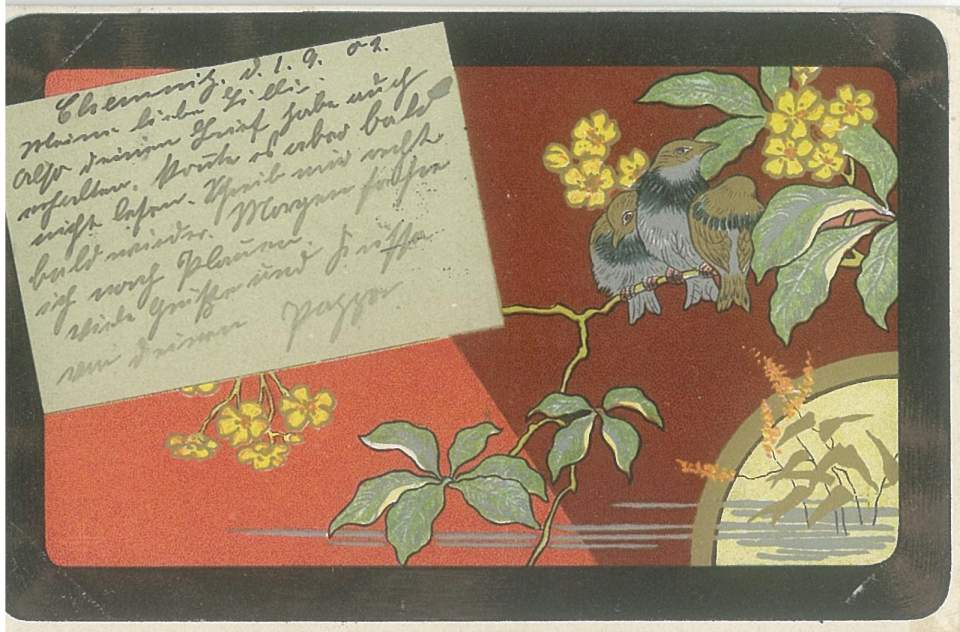 Chemnitz. d. 1. 9. 02.
Meine liebe Lilli.
Also deinen Brief habe auch
erhalten. Konnte es aber bald
nicht lesen. Schreib mir recht
bald wieder. Morgen fahre
ich nach Plauen.
Viele Grüße und Küsse
von deinem Pappa